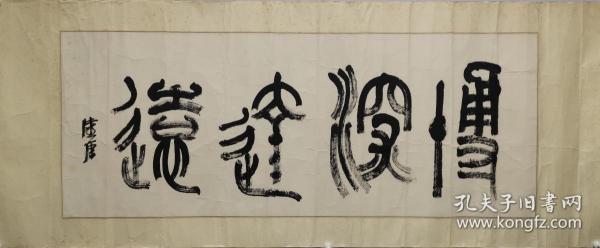 博深達遠
孔夫子旧书网
www.kongfz.com